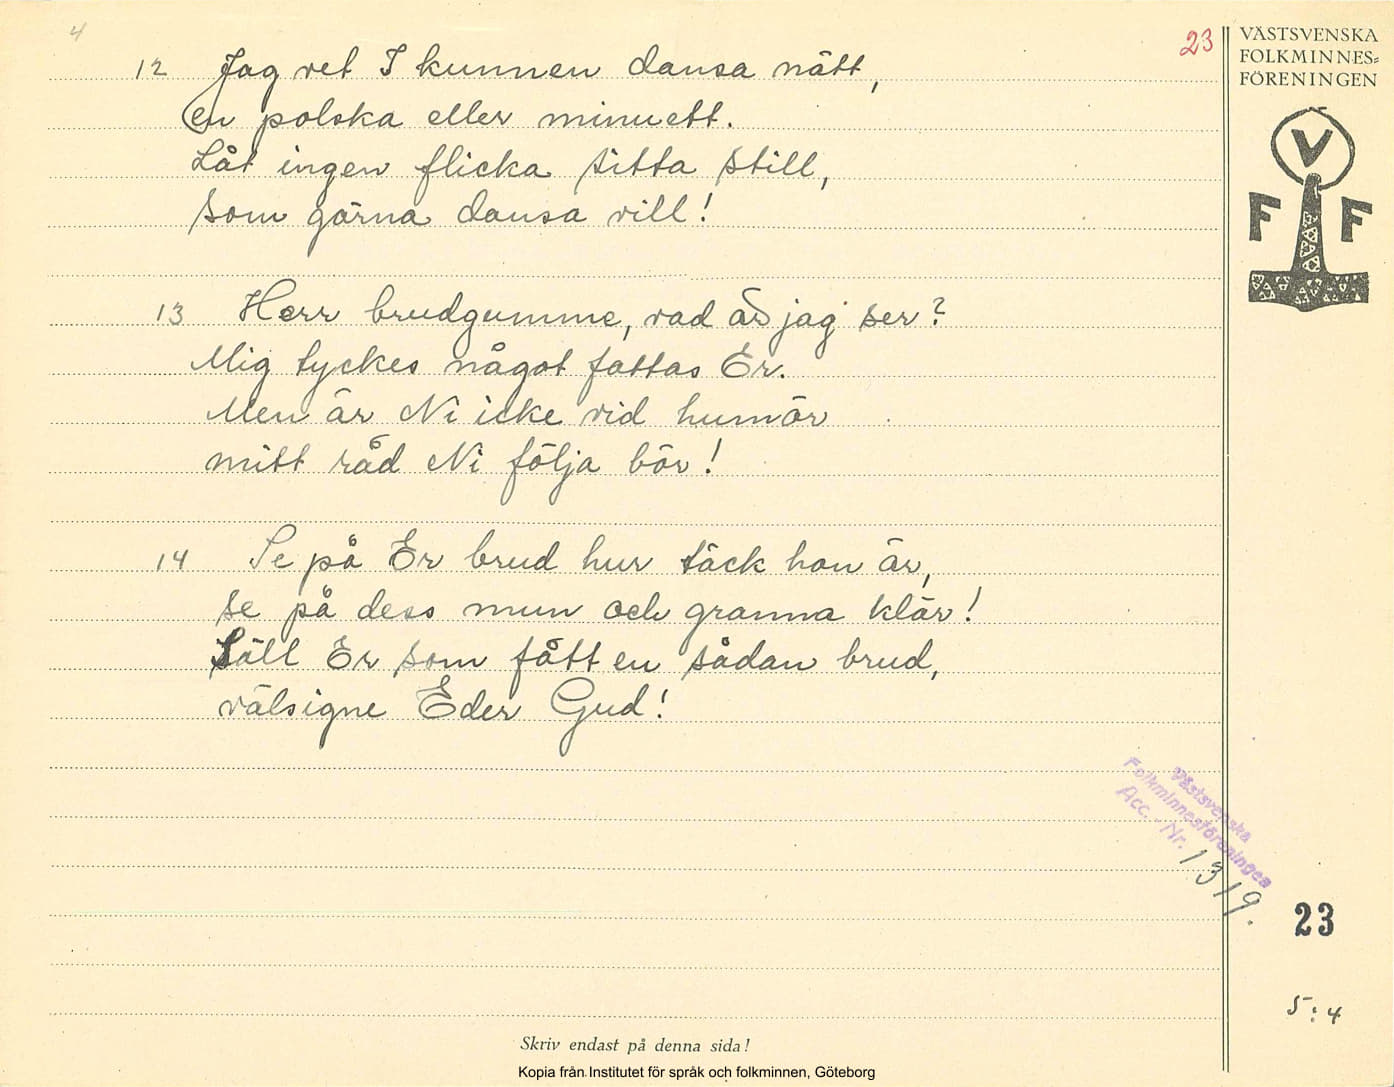 4
23
VÄSTSVENSKA
FOLKMINNES=
FÖRENINGEN
V
F F
12 Jag vet I kunnen dansa nätt,
en polska eller minuett.
Låt ingen flicka sitta still,
som gärna dansa vill!
13 Herr brudgumme, vad är jag ser?
Mig tyckes något fattas Er.
Men är Ni icke vid humör
mitt råd Ni följa bör!
14 Se på Er brud hur täck hon är,
se på dess mun och granna klär!
Säll Er som fått en sådan brud,
välsigne Eder Gud!
Västsvenska
Folkminnesföreningen
Acc. Nr. 1319.
23
5:4
Skriv endast på denna sida!
Kopia från Institutet för språk och folkminnen, Göteborg